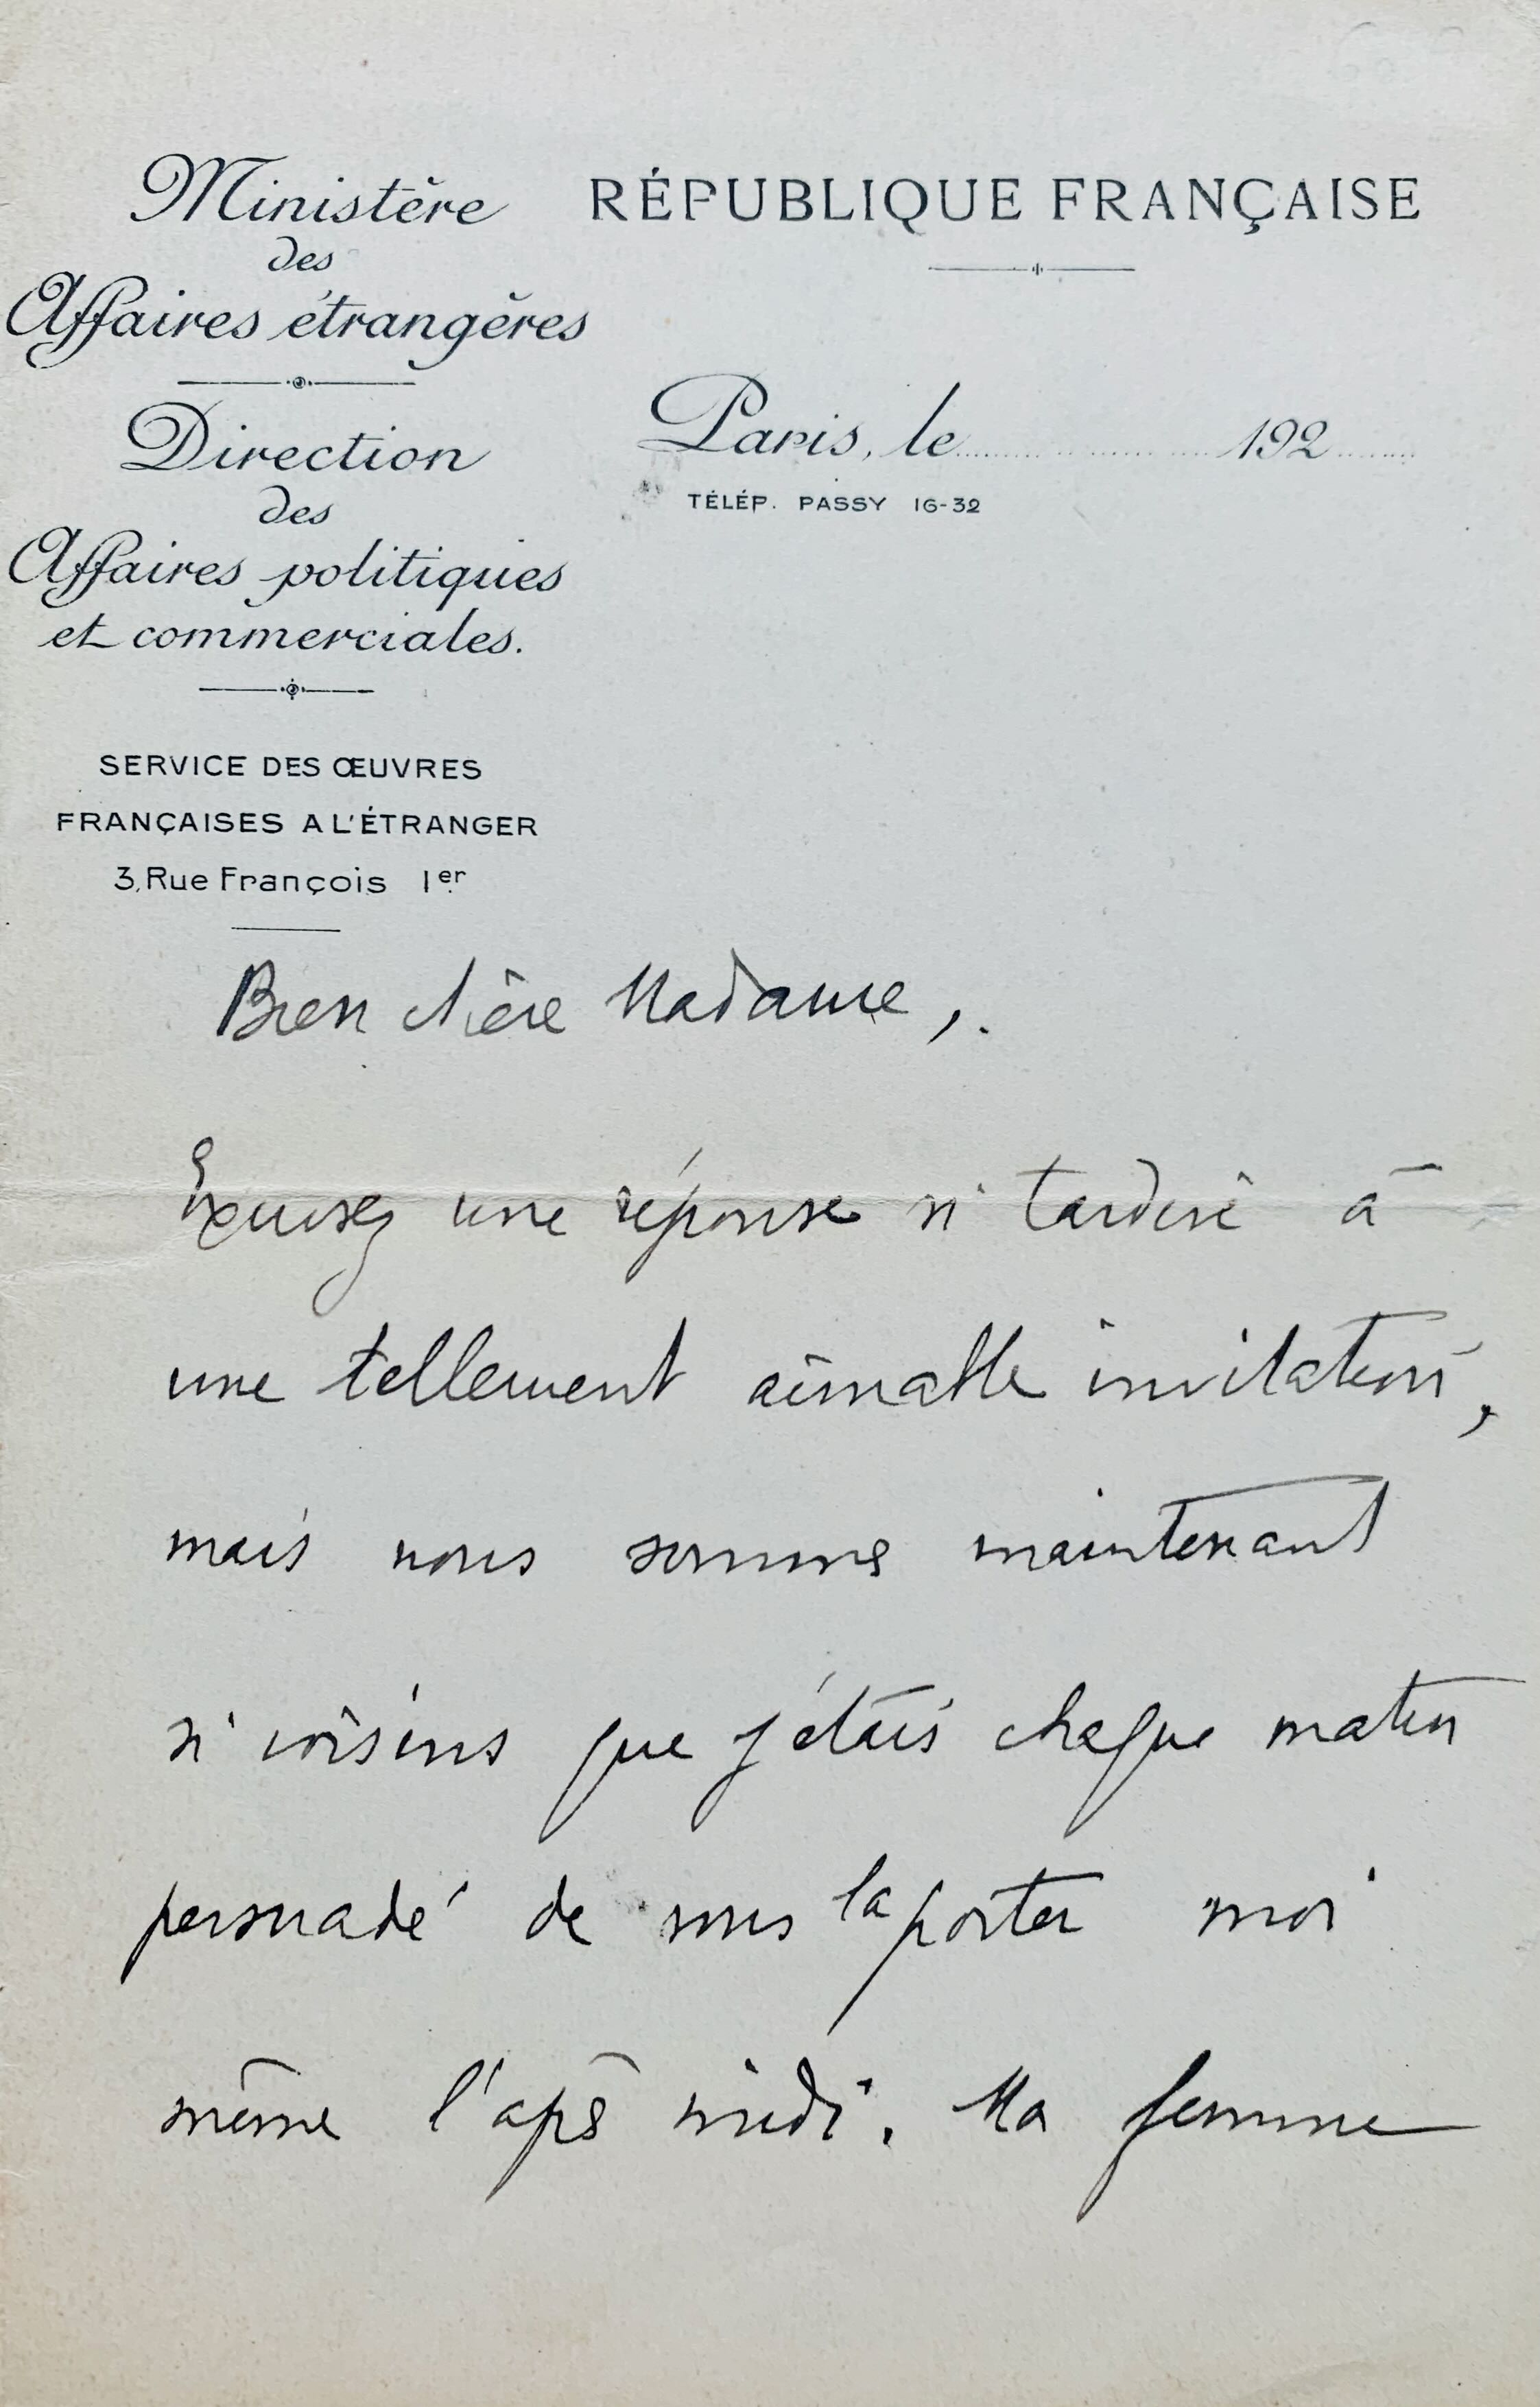 Ministère
des
Affaires étrangères
Direction
des
Affaires politiques
et commerciales.
SERVICE DES ŒUVRES
FRANÇAISES A L'ÉTRANGER
3, Rue François 1er
RÉPUBLIQUE FRANÇAISE
Paris, le 192
TÉLÉP. PASSY 16-32
Bien chère Madame,.
Excusez une réponse si tardive à
une tellement aimable invitation,
mais nous sommes maintenant
si voisins que j'étais chaque matin
persuadé de vous la porter moi
même l'après midi. Ma femme